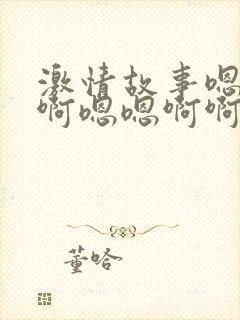 激情故事嗯
啊嗯嗯啊啊
董哈